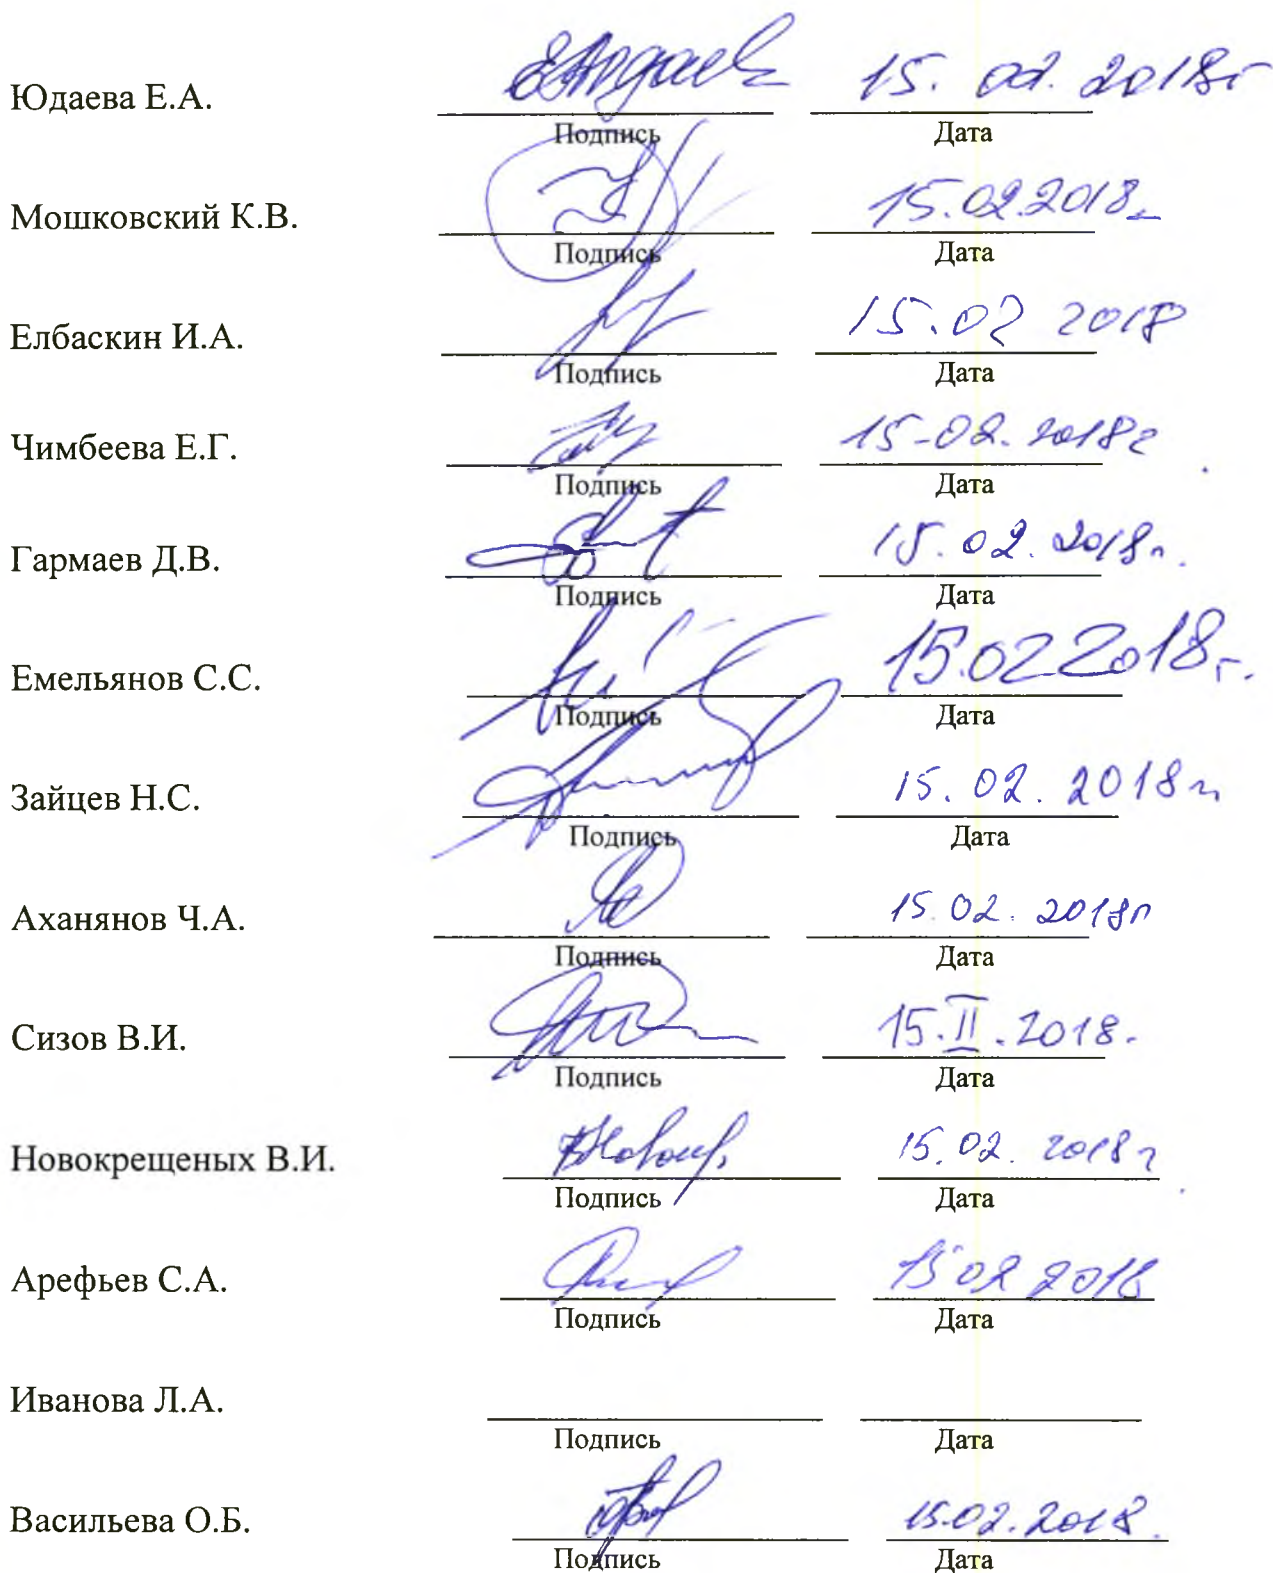 Юдаева Е.А. 15. 02. 2018г
Подпись Дата
Мошковский К.В. 15.02.2018г
Подпись Дата
Елбаскин И.А. 15.02 2018
Подпись Дата
Чимбеева Е.Г. 15-02. 2018г.
Подпись Дата
Гармаев Д.В. 15.02.2018г.
Подпись Дата
Емельянов С.С. 15.02 2018г.
Подпись Дата
Зайцев Н.С. 15. 02. 2018г
Подпись Дата
Аханянов Ч.А. 15.02. 2018г
Подпись Дата
Сизов В.И. 15.II.2018.
Подпись Дата
Новокрещеных В.И. 15.02. 2018г
Подпись Дата
Арефьев С.А. 15 02 2018
Подпись Дата
Иванова Л.А.
Подпись Дата
Васильева О.Б. 15.02.2018.
Подпись Дата